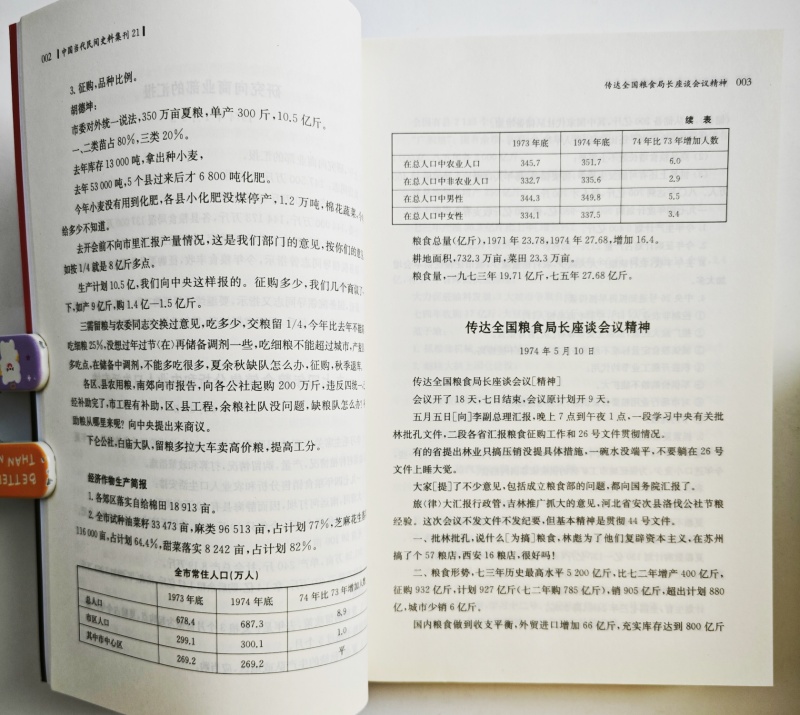 002 ┃中国当代民间史料集刊21┃
3. 征购,品种比例。
胡德坤:
市委对外统一说法,350万亩夏粮,单产300斤,10.5亿斤。
一、二类苗占80%,三类20%。
去年库存13 000吨,拿出种小麦,
去年53 000吨,5个县过来后才6 800吨化肥。
今年小麦没有用到化肥,各县小化肥没煤停产,1.2万吨,棉花蔬菜,小
给多少不知道。
去开会前不向市里汇报产量情况,这是我们部门的意见,按你们的意
如按1/4就是8亿斤多点。
生产计划10.5亿,我们向中央这样报的。征购多少,我们几个商议了
下,如产9亿斤,购1.4亿—1.5亿斤。
三需留粮与农委同志交换过意见,吃多少,交粮留1/4,今年比去年不能
吃细粮25%,没想过年过节〈在〉再储备调剂一些,吃细粮不能超过城市,产
多吃点,在储备中调剂,不能多吃很多,夏余秋缺队怎么办,征购,秋季退库,
各区、县农用粮,南郊向市报告,向各公社起购200万斤,违反四统一
经补助完了,市工程有补助,区、县工程,余粮社队没问题,缺粮队怎么办?
助粮从哪里来呢?向中央提出来商议。
下仑公社,白庙大队,留粮多拉大车卖高价粮,提高工分。
经济作物生产简报
1. 各郊区落实自给棉田18 913亩。
2. 全市试种油菜籽33 473亩,麻类96 513亩,占计划77%,芝麻花生
116 000亩,占计划64.4%,甜菜落实8 242亩,占计划82%。
全市常住人口(万人)
1973年底 1974年底 74年比73年增加人数
总人口 678.4 687.3 8.9
市区人口 299.1 300.1 1.0
其中市中心区 269.2 269.2 平
传达全国粮食局长座谈会议精神 003
续 表
1973年底 1974年底 74年比73年增加人数
在总人口中农业人口 345.7 351.7 6.0
在总人口中非农业人口 332.7 335.6 2.9
在总人口中男性 344.3 349.8 5.5
在总人口中女性 334.1 337.5 3.4
粮食总量(亿斤),1971年23.78,1974年27.68,增加16.4。
耕地面积,732.3万亩,菜田23.3万亩。
粮食量,一九七三年19.71亿斤,七五年27.68亿斤。
传达全国粮食局长座谈会议精神
1974年5月10日
传达全国粮食局长座谈会议[精神]
会议开了18天,七日结束,会议原计划开9天。
五月五日[向]李副总理汇报,晚上7点到午夜1点,一段学习中央有关批
林批孔文件,二段各省汇报粮食征购工作和26号文件贯彻情况。
有的省提出林业只搞压销没提具体措施,一碗水没端平,不要躺在26号
文件上睡大觉。
大家[提]了不少意见,包括成立粮食部的问题,都向国务院汇报了。
旅(律)大汇报行政管,吉林推广抓大的意见,河北省安次县洛伐公社节粮
经验。这次会议不发文件不发纪要,但基本精神是贯彻44号文件。
一、批林批孔,说什么[为搞]粮食,林彪为了他们复辟资本主义,在苏州
搞了个57粮店,西安16粮店,很好吗!
二、粮食形势,七三年历史最高水平5 200亿斤,比七二年增产400亿斤,
征购932亿斤,计划927亿斤(七二年购785亿斤),销905亿斤,超出计划880
亿,城市少销6亿斤。
国内粮食做到收支平衡,外贸进口增加66亿斤,充实库存达到800亿斤
BETTER
THAN